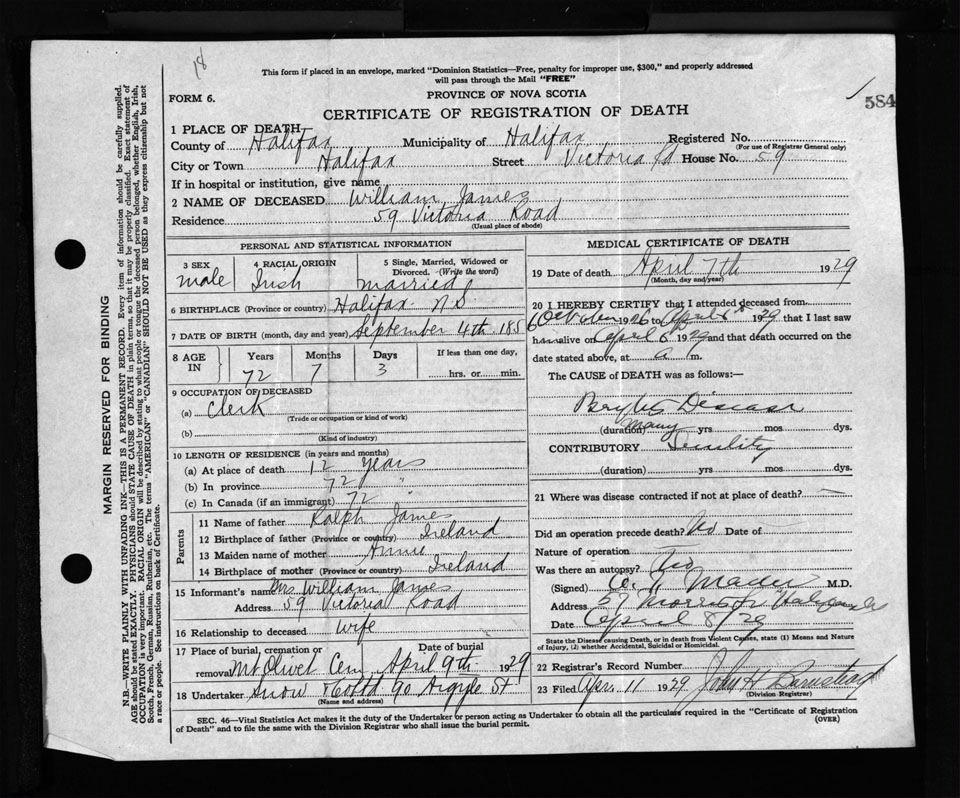 18
This form if placed in an envelope, marked "Dominion Statistics—Free, penalty for improper use, $300," and properly addressed
will pass through the Mail "FREE"
584
FORM 6.
PROVINCE OF NOVA SCOTIA
CERTIFICATE OF REGISTRATION OF DEATH
1 PLACE OF DEATH
County of Halifax Municipality of Halifax Registered No.
(For use of Registrar General only)
City or Town Halifax Street Victoria Rd House No. 59
If in hospital or institution, give name
2 NAME OF DECEASED William James
Residence 59 Victoria Road
(Usual place of abode)
PERSONAL AND STATISTICAL INFORMATION
3 SEX 4 RACIAL ORIGIN 5 Single, Married, Widowed or
Divorced. (Write the word)
male Irish married
6 BIRTHPLACE (Province or country) Halifax N.S.
7 DATE OF BIRTH (month, day and year) September 4th 185
8 AGE IN Years Months Days If less than one day,
72 7 3 hrs. or min.
9 OCCUPATION OF DECEASED
(a) Clerk
(Trade or occupation or kind of work)
(b)
(Kind of industry)
10 LENGTH OF RESIDENCE (in years and months)
(a) At place of death 12 years
(b) In province 72 "
(c) In Canada (if an immigrant) 72 "
Parents
11 Name of father Ralph James
12 Birthplace of father (Province or country) Ireland
13 Maiden name of mother Annie
14 Birthplace of mother (Province or country) Ireland
15 Informant's name Mrs William James
Address 59 Victoria Road
16 Relationship to deceased wife
17 Place of burial, cremation or Date of burial
removal Mt Olivet Cem April 9th 1929
18 Undertaker Snow 90 Argyle St
(Name and address)
MEDICAL CERTIFICATE OF DEATH
19 Date of death April 7th 1929
(Month, day and year)
20 I HEREBY CERTIFY that I attended deceased from
October 1926 to April 6th 1929 that I last saw
him alive on April 6 1929 and that death occurred on the
date stated above, at a m.
The CAUSE of DEATH was as follows:—
Brights Disease
(duration) Many yrs mos dys.
CONTRIBUTORY Senility
(duration) yrs mos dys.
21 Where was disease contracted if not at place of death? —
Did an operation precede death? No Date of
Nature of operation
Was there an autopsy? No
(Signed) Mader M.D.
Address 57 Morris St Halifax
Date April 8/29
State the Disease causing Death, or in death from Violent Causes, state (1) Means and Nature
of Injury, (2) whether Accidental, Suicidal or Homicidal.
22 Registrar's Record Number
23 Filed Apr. 11 1929 John H Barnstead
(Division Registrar)
SEC. 46—Vital Statistics Act makes it the duty of the Undertaker or person acting as Undertaker to obtain all the particulars required in the "Certificate of Registration
of Death" and to file the same with the Division Registrar who shall issue the burial permit.
(OVER)
MARGIN RESERVED FOR BINDING
N.B.—WRITE PLAINLY WITH UNFADING INK—THIS IS A PERMANENT RECORD. Every item of information should be carefully supplied.
AGE should be stated EXACTLY. PHYSICIANS should STATE CAUSE OF DEATH in plain terms, so that it may be properly classified. Exact statement of
OCCUPATION is very important. RACIAL ORIGIN will be described by stating to what people or tongue the deceased person belonged, whether English, Irish,
Scotch, French, German, Russian, Ruthenian, etc. The terms "AMERICAN" or "CANADIAN" SHOULD NOT BE USED as they express citizenship but not
a race or people. See instructions on back of Certificate.